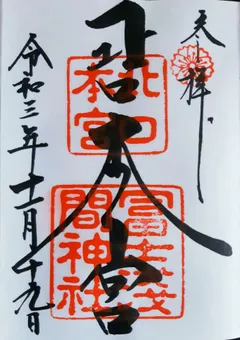 奉拝
北口本宮
北口
本宮
冨士浅
間神社
令和三年十一月十九日